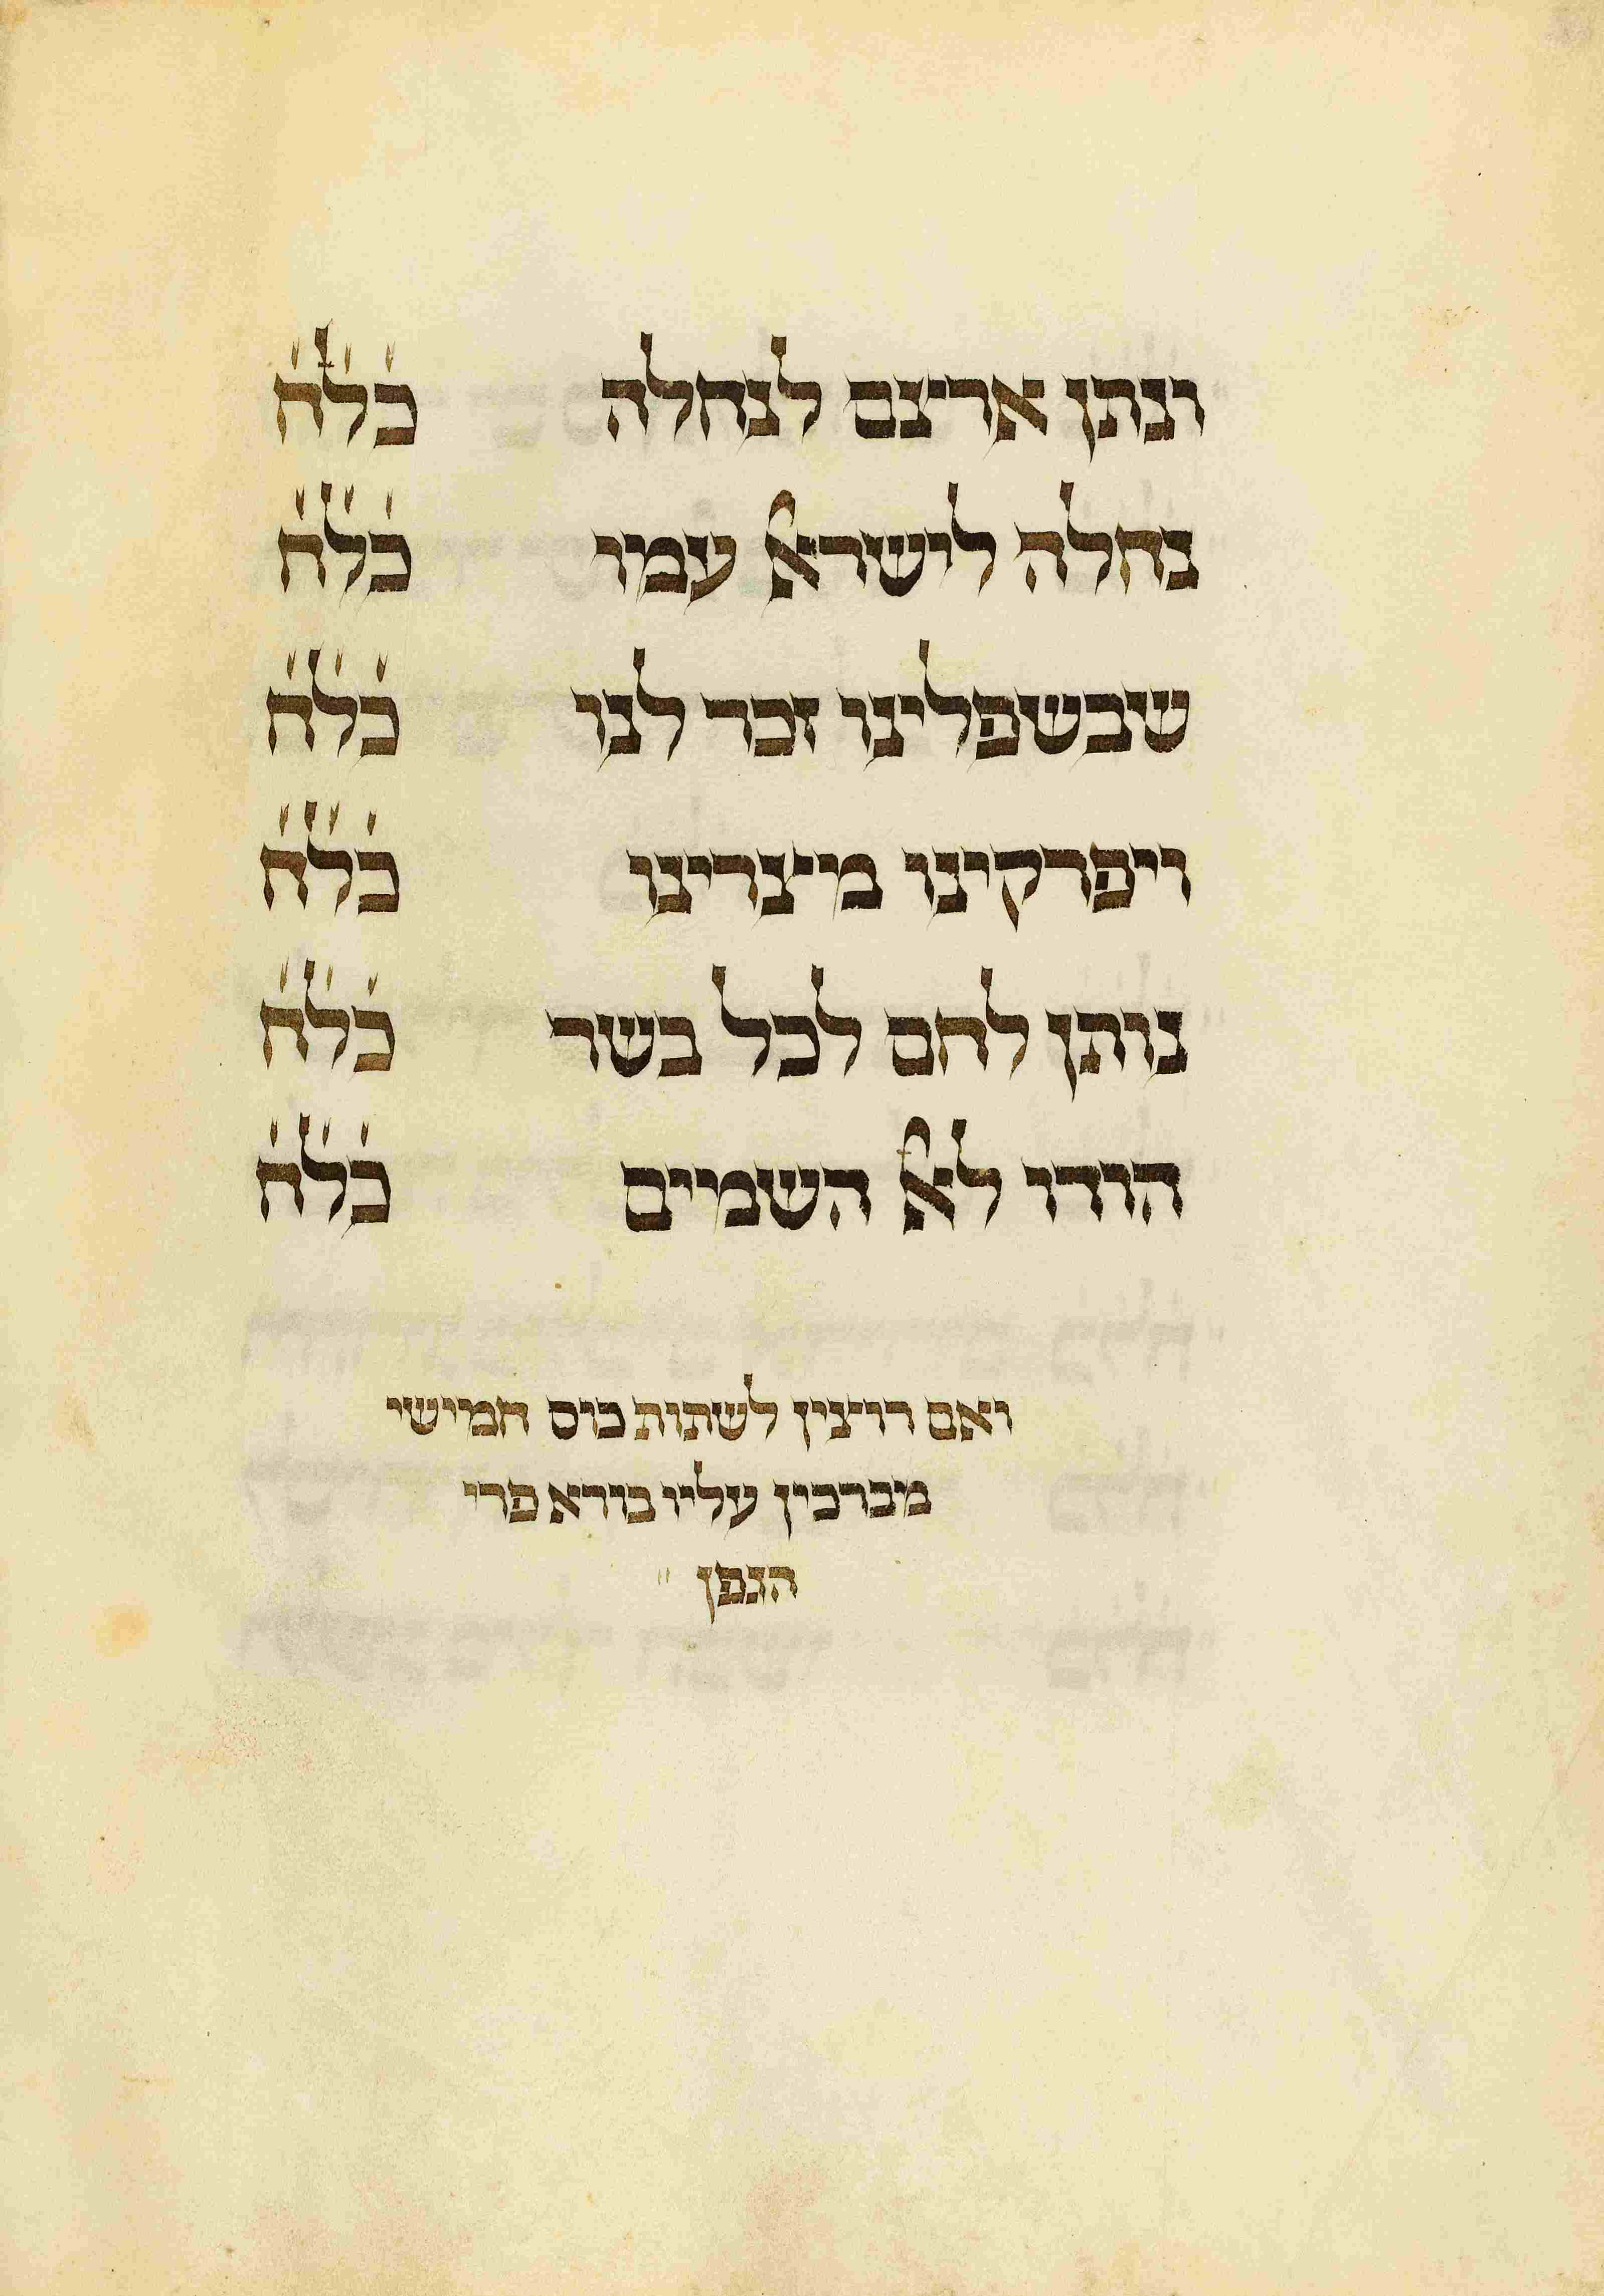 ונתן ארצם לנחלה כלח
נחלה לישראﭏ עמו כלח
שבשפלינו זכר לנו כלח
ויפרקינו מצרינו כלח
נותן לחם לכל בשר כלח
הודו לﭏ השמים כלח
ואם רוצין לשתות כוס חמישי
מברכין עליו בורא פרי
הגפן